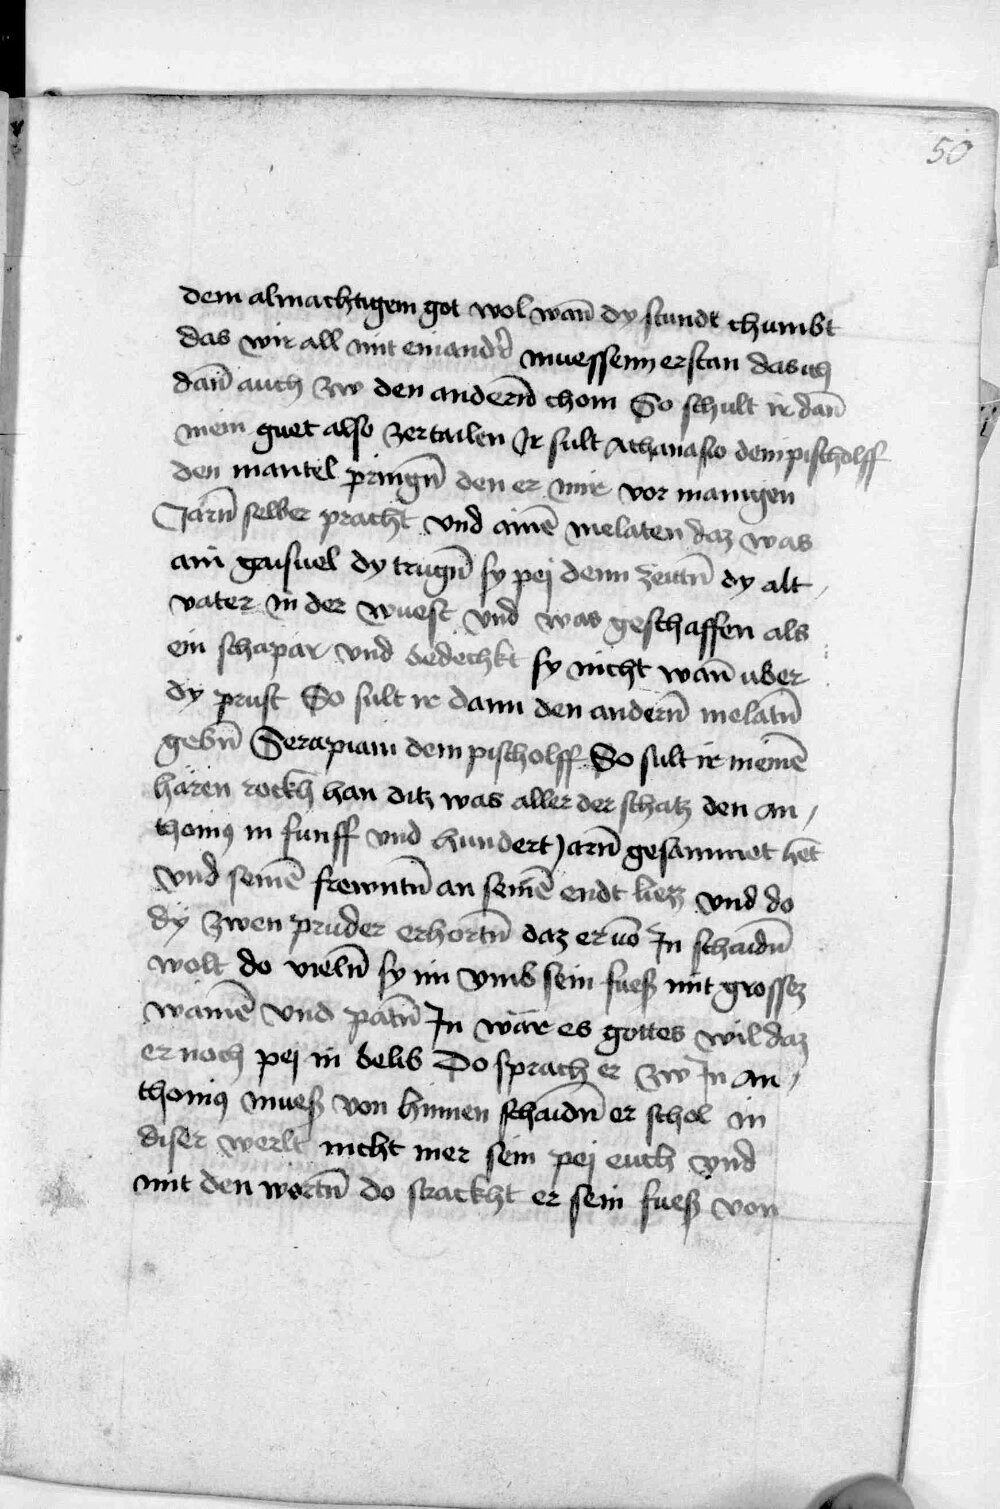 50
dem almachtigem got wol wan̄ dy stundt chumbt
das wir all mit einandr̄ muessenn erstan das ich
dan̄ auch zw den andern̄ chom So schult ir dan̄
mein guet also zertailen Ir sult Athanasio dem pischolff
den mantel pringn̄ den er mir vor manigen
Jarn̄ selber pracht vnd ainē melaten daz was
ain gaisuel dy trugn̄ sy pej denn zeitn̄ dy alt
vater in der wuest vnd was geschaffen als
ein schapär vnd bedechkt sy nicht wan̄ uber
dy prust So sult ir dann den andern̄ melatn̄
gebn̄ Serapiani dem pischolff So sult ir meinē
härēn rockh han ditz was aller der schatz den An,
thonius in funff vnd hundert Jarn̄ gesammet het
vnd seinē frewntn̄ an seinē endt liezz vnd do
dy zwen pruder erhortn̄ daz er vō In schaidn̄
wolt do vieln̄ sy im vmb sein fuesz mit grossez
wainē vnd patn̄ In wär es gottes wil daz
er noch pej in belib Do sprach er zw In An,
thonius muesz von hinnen schaidn̄ er schol in
diser werlt nicht mer sein pej euch vnd
mit den wortn̄ do strackht er sein fuesz von